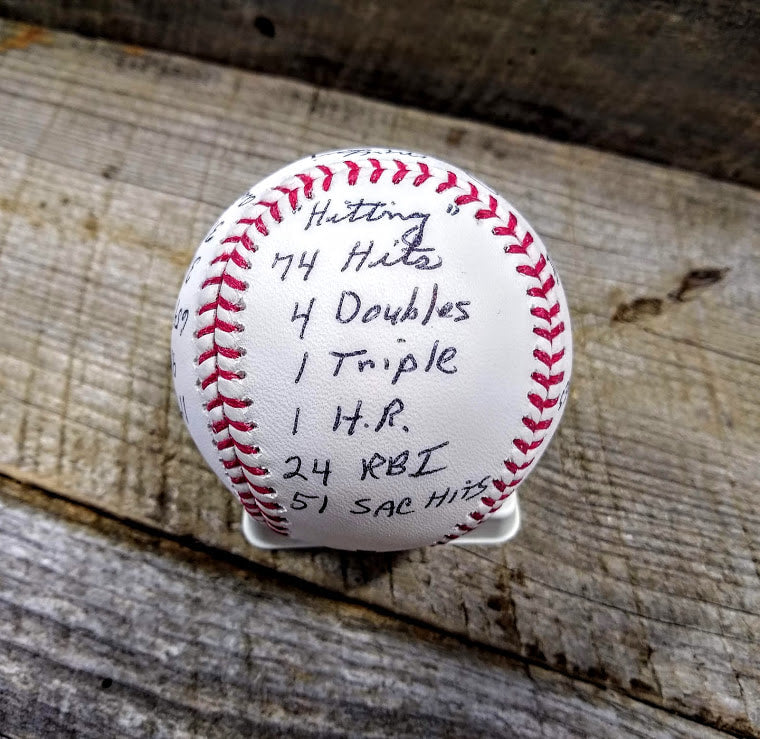 "Hitting"
74 Hits
4 Doubles
1 Triple
1 H.R.
24 RBI
51 SAC HITS